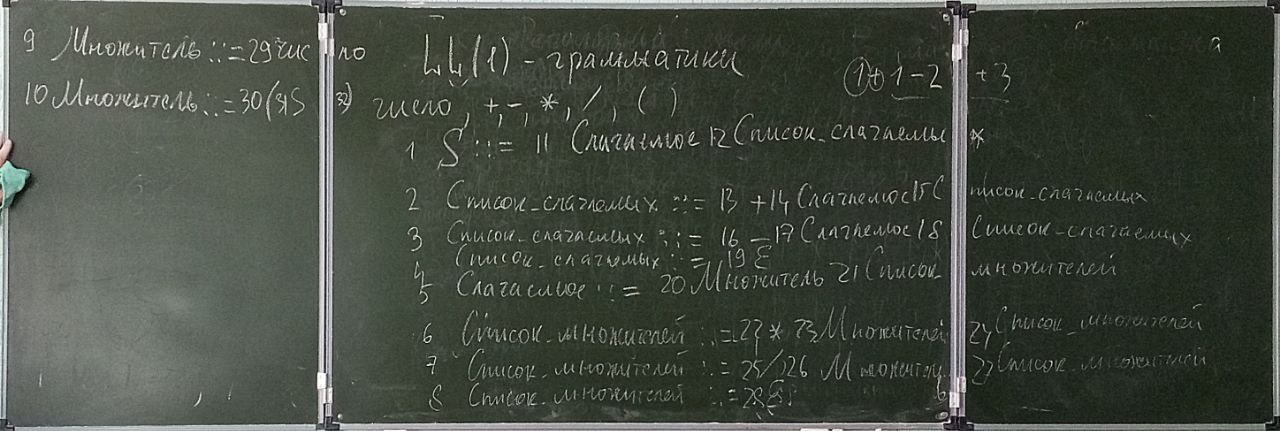 9 Множитель ::= 29 число
10 Множитель ::= 30 (31 S 32)
LL(1) - грамматики
1 + 1 - 2 + 3
число, +, -, *, /, ( )
1 S ::= 11 Слагаемое 12 Список_слагаемых
2 Список_слагаемых ::= 13 + 14 Слагаемое 15 Список_слагаемых
3 Список_слагаемых ::= 16 - 17 Слагаемое 18 Список_слагаемых
4 Список_слагаемых ::= 19 ε
5 Слагаемое ::= 20 Множитель 21 Список множителей
6 Список_множителей ::= 22 * 23 Множителей 24 Список_множителей
7 Список_множителей ::= 25 / 26 Множител 27 Список_множителей
8 Список_множителей ::= 28 ε